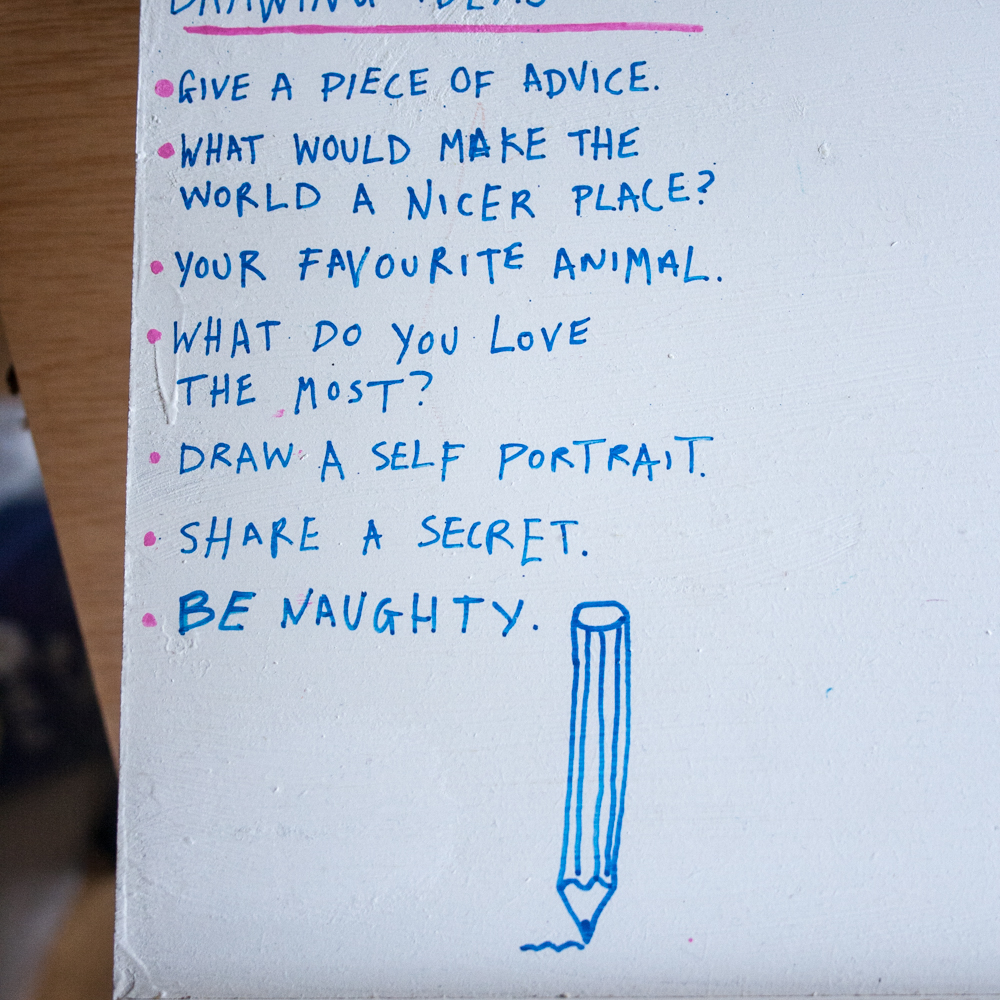 DRAWING IDEAS
• GIVE A PIECE OF ADVICE.
• WHAT WOULD MAKE THE
WORLD A NICER PLACE?
• YOUR FAVOURITE ANIMAL.
• WHAT DO YOU LOVE
THE MOST?
• DRAW A SELF PORTRAIT.
• SHARE A SECRET.
• BE NAUGHTY.